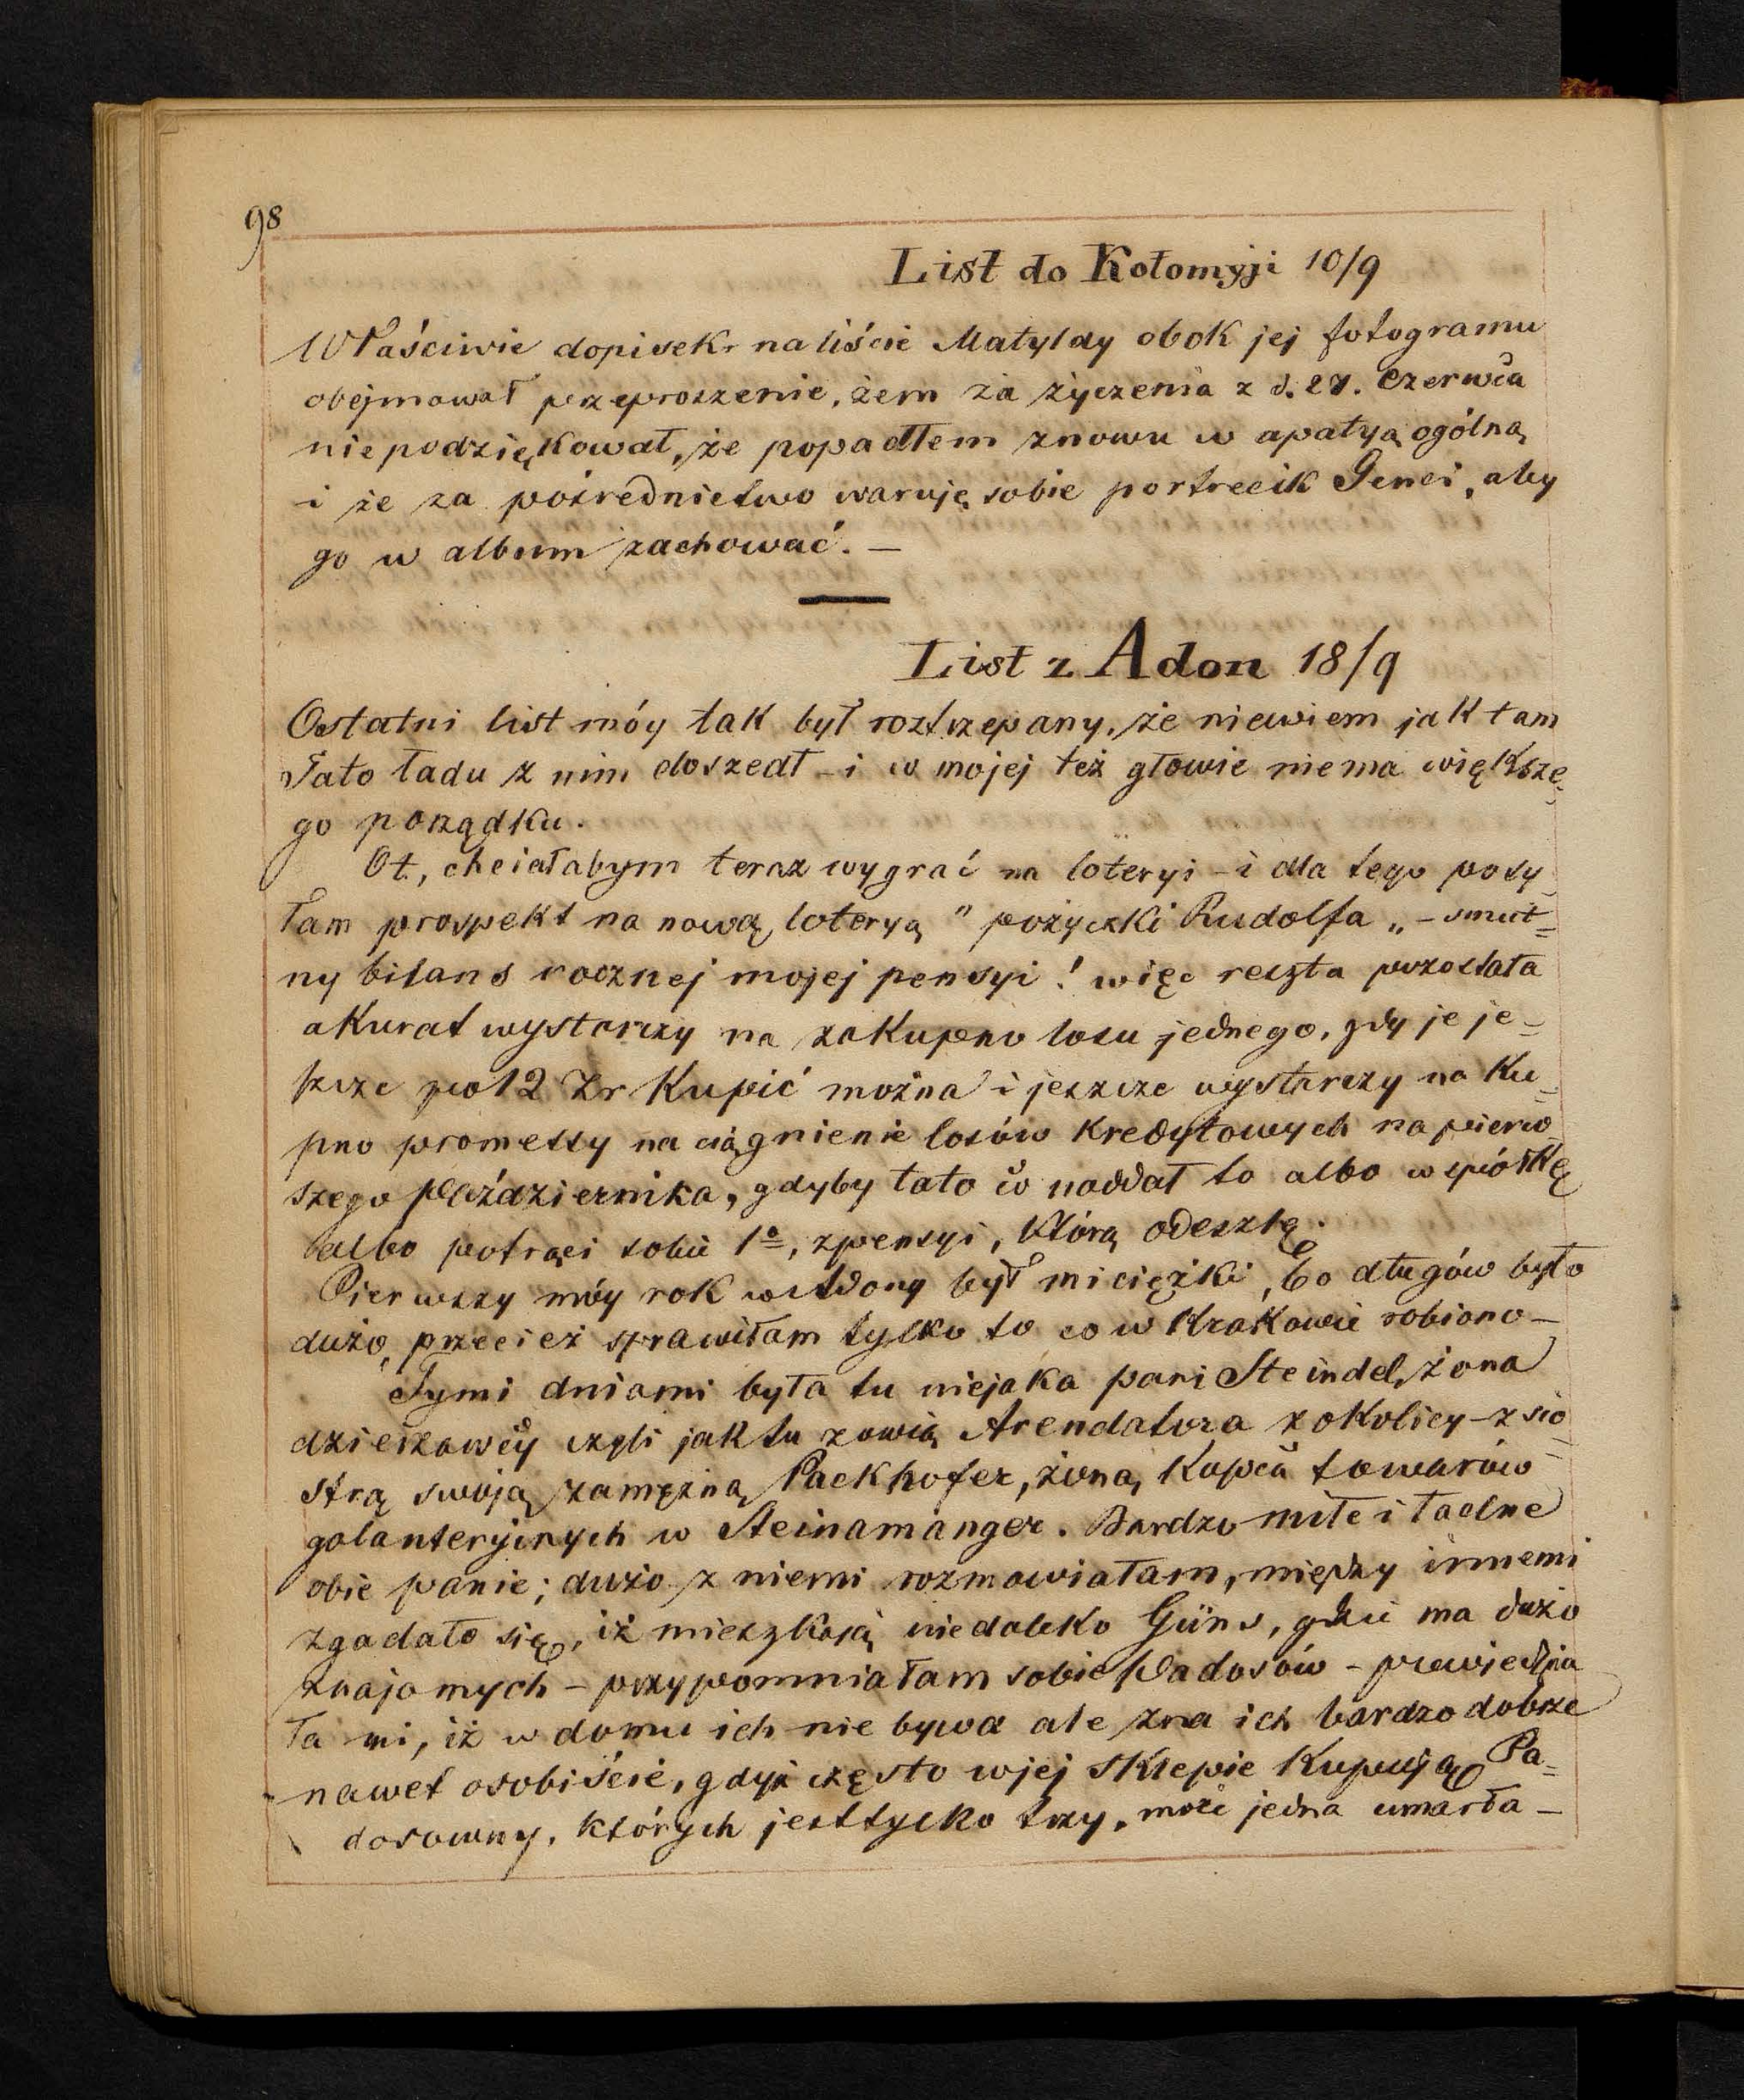 98
List do Kołomyji 10/9
Właściwie dopisek na liście Matyldy obok jej fotogramu
obejmował przeproszenie, żem za życzenia z d. 27. Czerwca
niepodziękował, że popadłem znowu w apatyą ogólną
i że za pośrednictwo waruję sobie portrecik Genci, aby
go w album zachować. —
List z Adon 18/9
Ostatni list móy tak był roztrzepany, że niewiem jak tam
Tato ładu z nim doszedł - i w mojej też głowie niema większe-
go porządku.
Ot, chciałabym teraz wygrać na loteryi - i dla tego posy-
łam prospekt na nową loteryą " pożyczki Rudolfa „ - smut=
ny bilans rocznej mojej pensyi ! więc reszta pozostała
akurat wystarczy na zakupno losu jednego, gdy je je-
szcze po 12 Zr kupić można i jeszcze wystarczy na ku-
pno promessy na ciągnienie losów kredytowych na pierw-
szego Października, gdyby tato co naddał to albo w spółkę
albo potrąci sobie 1º, z pensyi, którą odeszlę.
Pierwszy móy rok w Adony był mi ciężki, bo długów było
dużo, przecież sprawiłam tylko to co w Krakowie robiono -
Tymi dniami była tu niejaka pani Steindel, żona
dzierżawcy czyli jak tu zowią Arendatora z okolicy - z sio=
strą swoją zamężną Packhofer, żoną kupca towarów
galanteryjnych w Steinamanger. Bardzo miłe i ładne
obie panie; dużo z niemi rozmawiałam, między innemi
zgadało się, iż mieszkają niedaleko Güns, gdzie ma dużo
znajomych - przypomniałam sobie Padosów - powiedzia
ła mi, iż w domu ich nie bywa ale zna ich bardzo dobrze
nawet osobiście, gdyż często w jej sklepie kupują Pa=
dosowny, których jest tylko trzy, może jedna umarła -